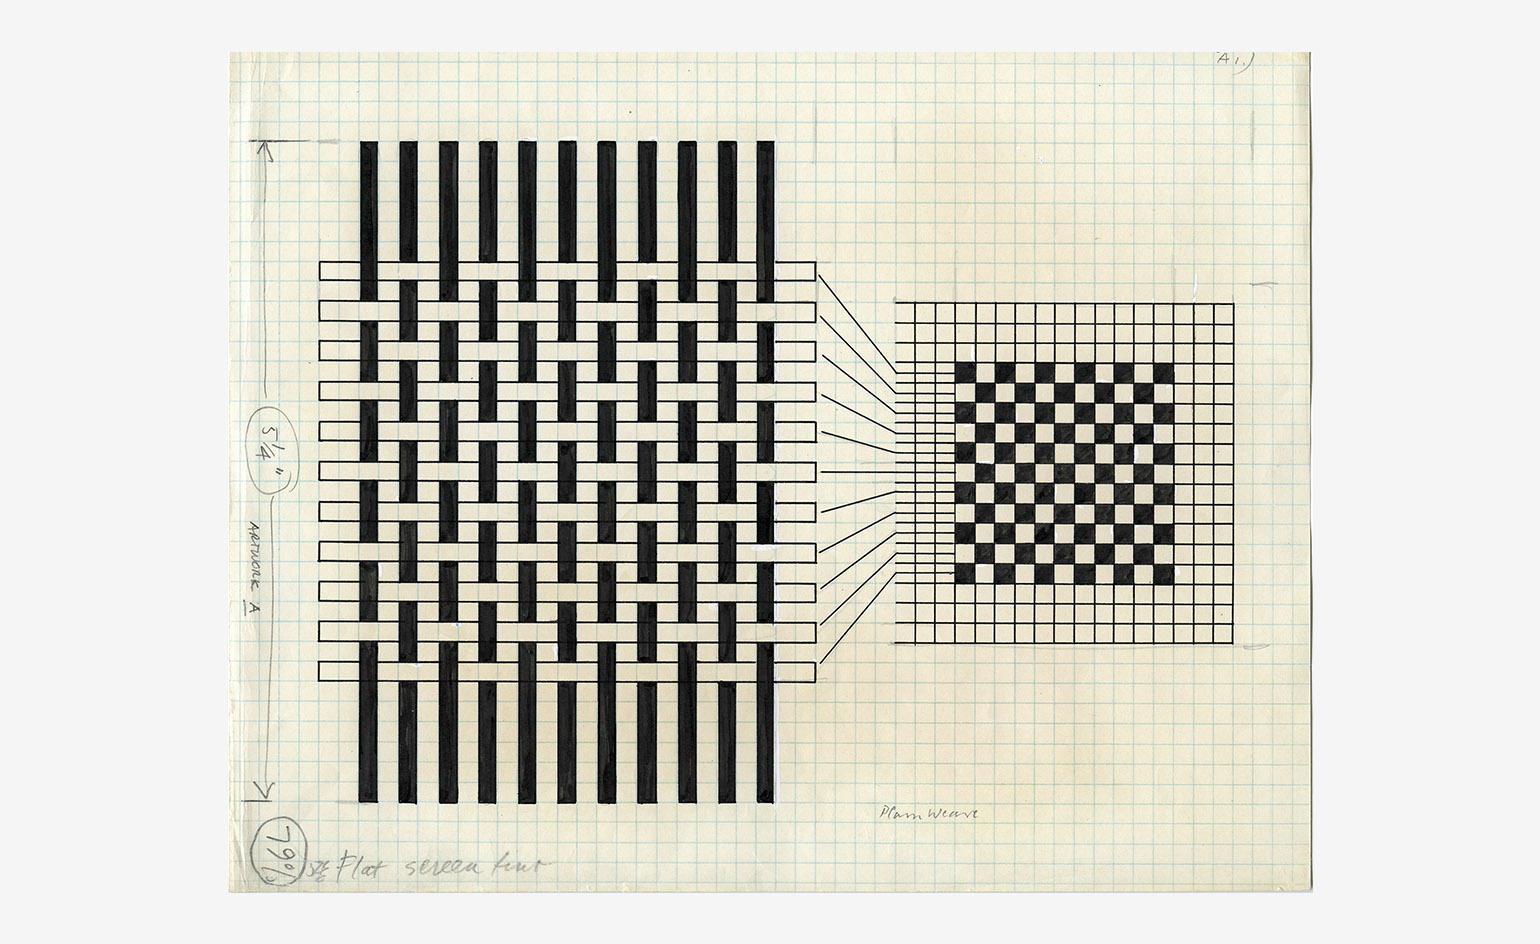 A1.)
5 1/4"
ARTWORK A
Plain Weave
79%
Flat screen tint